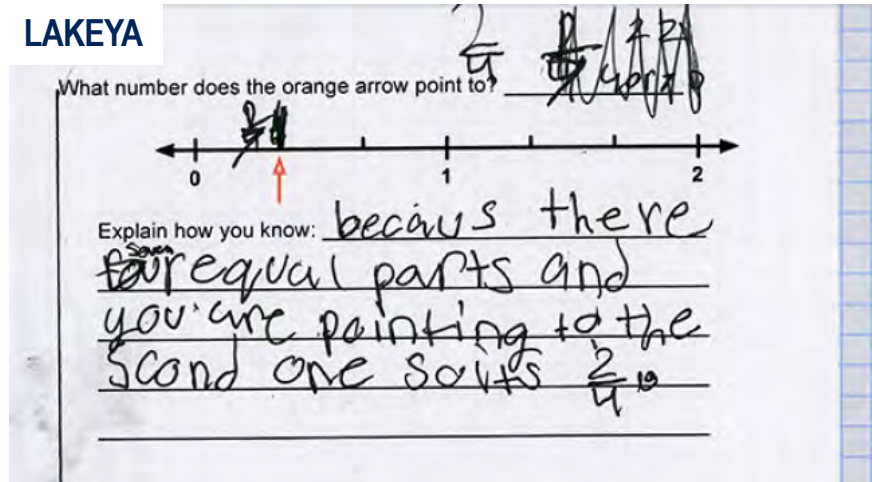 LAKEYA
2/4
What number does the orange arrow point to?
0 1 2
Explain how you know: becaus there
seven equal parts and
you are pointing to the
scond one so its 2/4